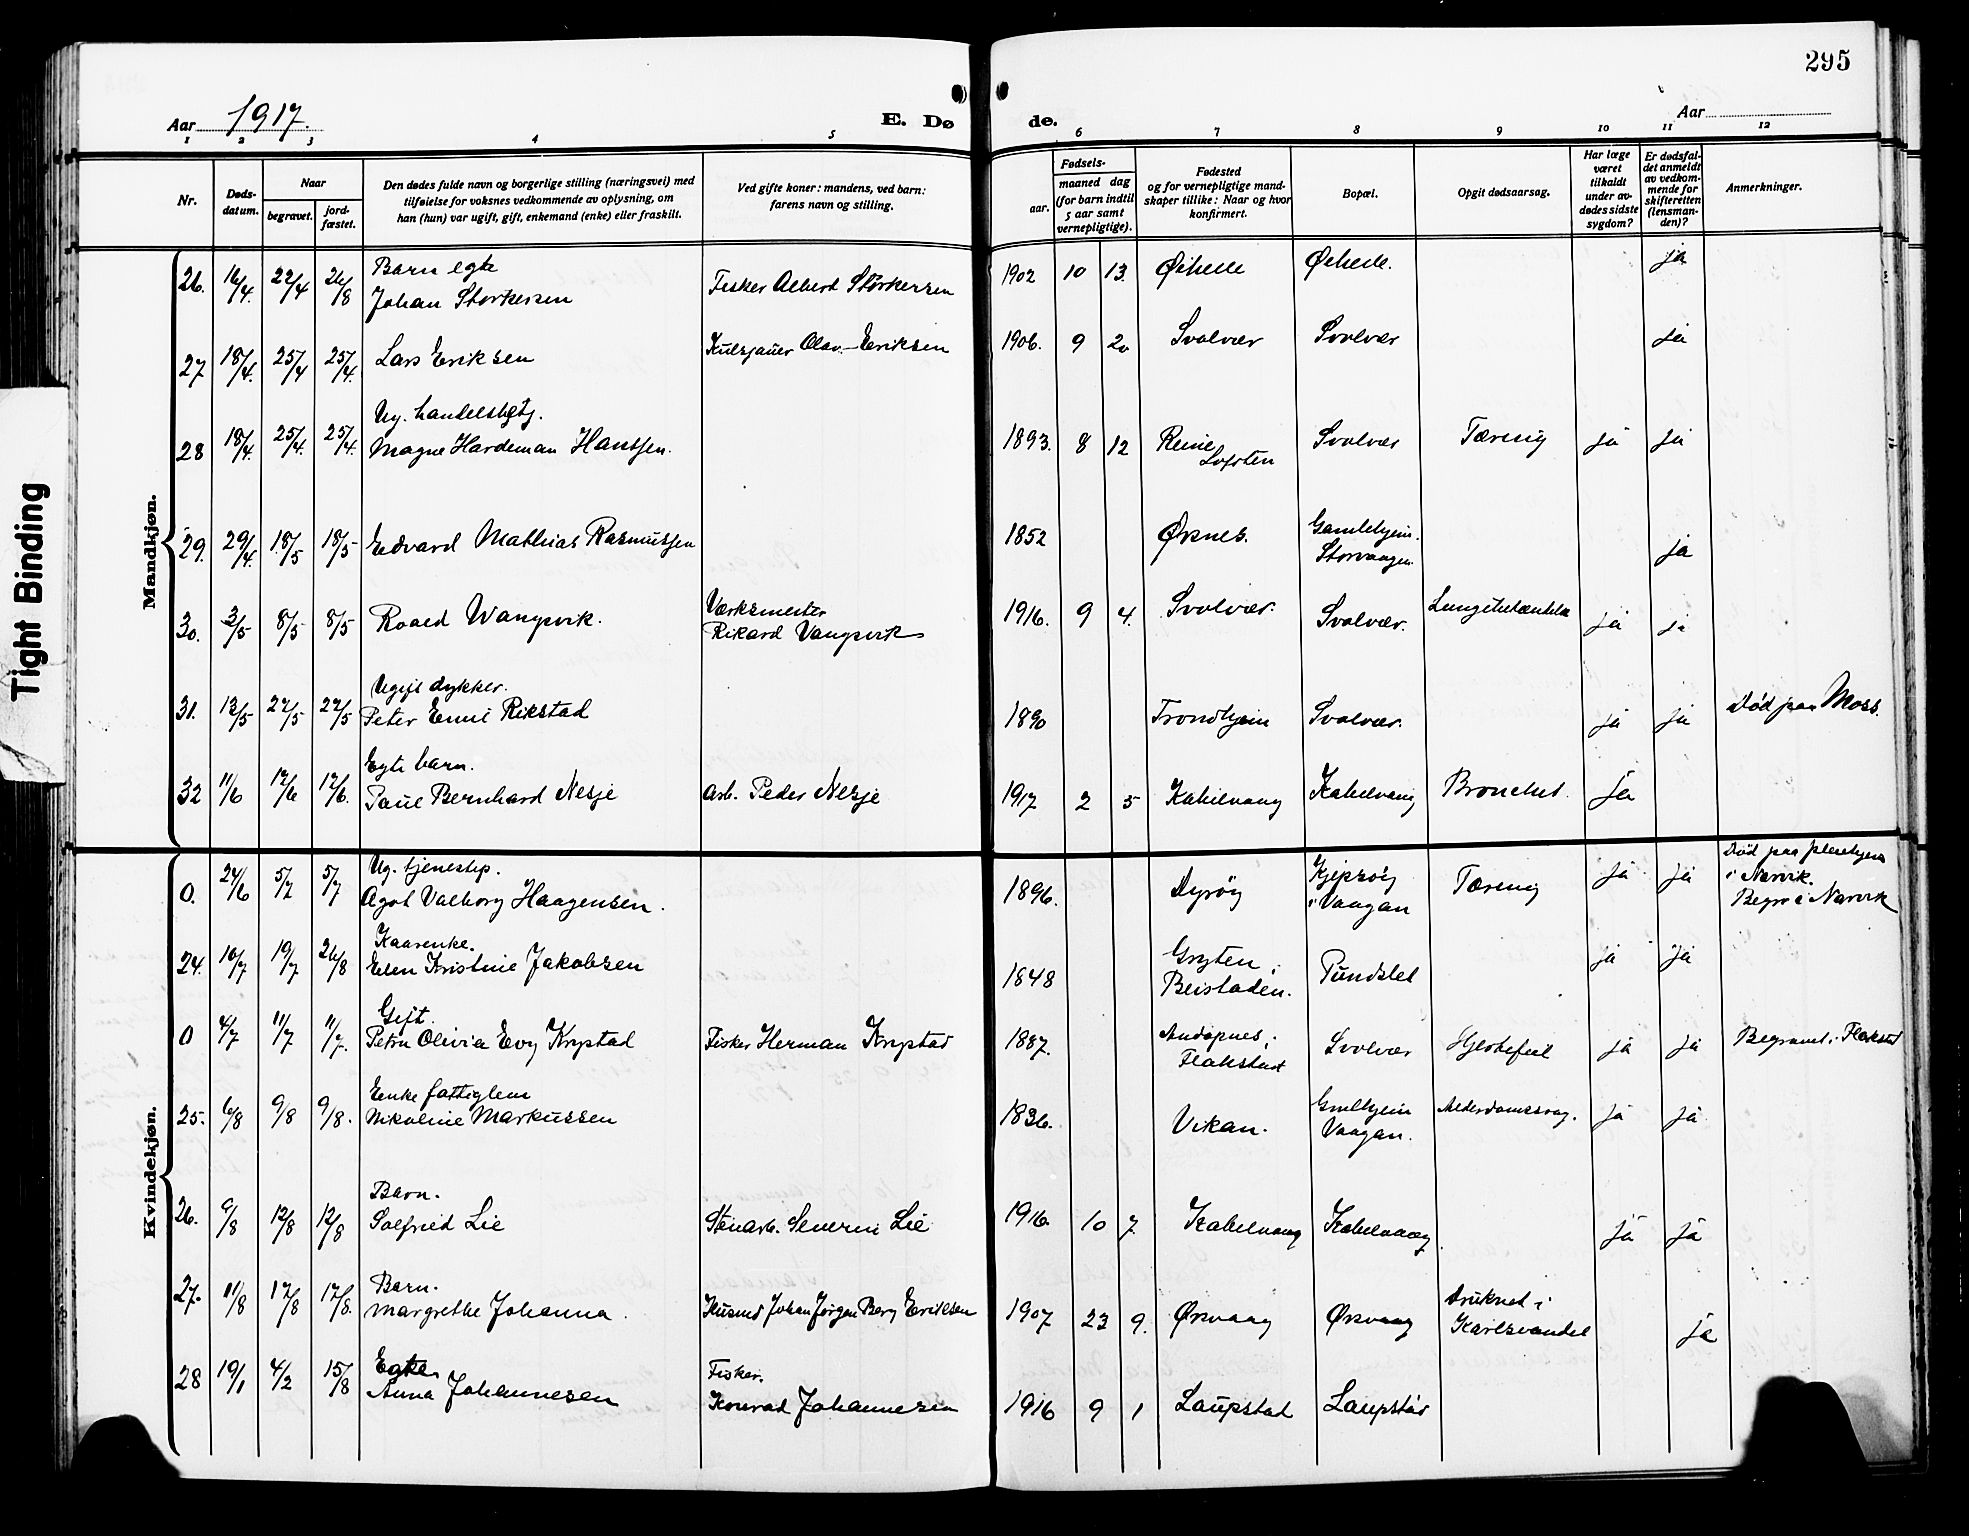 295
Aar 1917.
E. Dø
de.
Aar
1 2 3 4 5 6 7 8 9 10 11 12
Nr.
Døds-
datum.
Naar
begravet.
jord-
fæstet.
Den dødes fulde navn og borgerlige stilling (næringsvei) med
tilføielse for voksnes vedkommende av oplysning, om
han (hun) var ugift, gift, enkemand (enke) eller fraskilt.
Ved gifte koner: mandens, ved barn:
farens navn og stilling.
Fødsels-
aar.
maaned dag
(for barn indtil
5 aar samt
vernepligtige).
Fødested
og for vernepligtige mand-
skaper tillike: Naar og hvor
konfirmert.
Bopæl.
Opgit dødsaarsag.
Har læge
været
tilkaldt
under av-
dødes sidste
sygdom?
Er dødsfal-
det anmeldt
av vedkom-
mende for
skifteretten
(lensman-
den)?
Anmerkninger.
Tight Binding
Mandkjøn.
26. 16/4. 22/4 26/8 Barn egte
Johan Storkersen Fisker Albert Storkersen 1902 10 13. Ørhelle Ørhelle. ja
27 18/4. 25/4 25/4. Lars Eriksen Kulsjauer Olav Eriksen 1906. 9 20 Svolvær Svolvær ja
Ug. handelsbetj.
28 18/4. 25/4. 25/4. Magne Hardeman Hantsen. 1893. 8 12 Reine
Lofoten Svolvær Tæring ja ja
29. 29/4. 18/5 18/5 Edvard Mathias Rasmussen 1852 Øksnes. Gamlehjem.
Storvaagen ja
30. 3/5 8/5 8/5 Roald Wangsvik. Værksmester
Rikard Vangsvik 1916. 9 4. Svolvær. Svolvær. Lungebetændelse ja ja
Ugift dykker.
31. 13/5 22/5 22/5 Peter Emil Rikstad 1890 Trondhjem Svolvær. ja ja Død paa Moss.
Egte barn.
32 11/6 17/6 17/6. Paul Bernhard Nesje Arb. Peder Nesje 1917 2 5 Kabelvaag Kabelvaag Bronchit. ja
Kvindekjøn.
Ug. tjenestep.
0. 24/6 5/7 5/7 Agot Valborg Haagensen. 1896. Dyrøy Kjepsøy
i Vaagan Tæring ja ja Død paa pleiehjem
i Narvik.
Begr. i Narvik
Kaarenke.
24. 10/7 19/7 26/8 Elen Kristine Jakobsen 1848 Gryten i
Beistaden. Pundslet ja ja
Gift.
0 4/7 11/7 11/7. Petra Olivia Evy Krystad Fisker Herman Krystad 1887. Andopnes i
Flakstad Svolvær Hjertefeil ja ja Begravet i Flakstad
Enke fattiglem
25. 6/8 9/8 9/8. Nikoline Markussen 1836. Vikan. Gmlhjem
Vaagan. Alderdomssvag. ja ja
Barn.
26. 9/8 12/8 12/8 Solfried Lie Stenarb. Severin Lie 1916. 10 7. Kabelvaag Kabelvaag. ja ja
Barn.
27. 11/8 17/8 17/8. Margrethe Johanna. Husmd Johan Jørgen Berg Eriksen 1907 23 9. Ørsvaag Ørsvaag Druknet i
Karlsvandet ja
28 19/1 4/2 15/8 Egte
Anna Johannesen Fisker.
Konrad Johannesen 1916 9 1 Laupstad Laupstad